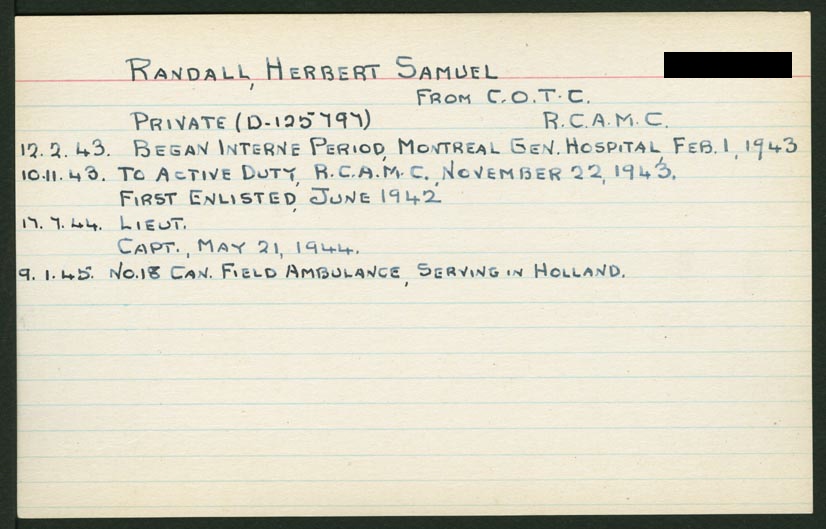 RANDALL, HERBERT SAMUEL
FROM C.O.T.C.
PRIVATE (D-125797) R.C.A.M.C.
12.2.43. BEGAN INTERNE PERIOD, MONTREAL GEN. HOSPITAL, FEB. 1, 1943
10.11.43. TO ACTIVE DUTY, R.C.A.M.C., NOVEMBER 22, 1943.
FIRST ENLISTED, JUNE 1942
17.7.44. LIEUT.
CAPT., MAY 21, 1944.
9.1.45. NO.18 CAN. FIELD AMBULANCE, SERVING IN HOLLAND.